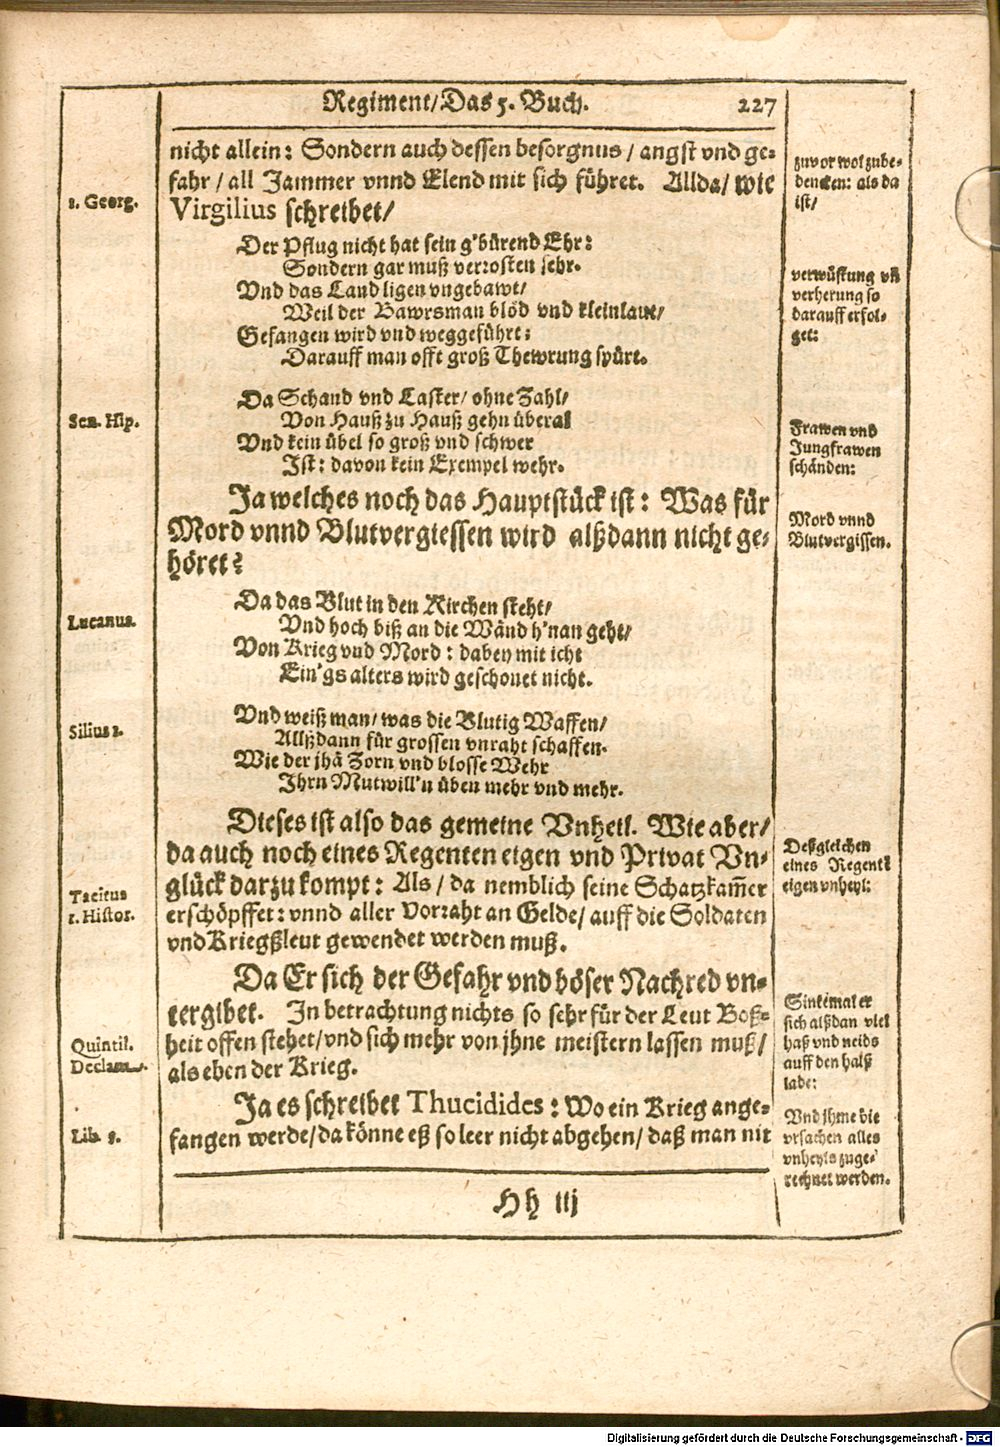 Regiment/Das 5. Buch. 227
nicht allein: Sondern auch dessen besorgnus / angst vnd ge-
fahr / all Jammer vnnd Elend mit sich führet. Allda/ wie
Virgilius schreibet/
1. Georg.
zuvor wol zube-
dencken: als da
ist/
Der Pflug nicht hat sein g'bürend Ehr:
Sondern gar muß verrosten sehr.
Vnd das Land ligen vngebawt/
Weil der Bawrsman blöd vnd kleinlaut/
Gefangen wird vnd weggeführt:
Darauff man offt groß Thewrung spürt.
verwüstung vñ
verherung so
darauff erfol-
get:
Da Schand vnd Laster/ ohne Zahl/
Von Hauß zu Hauß gehn überal
Vnd kein übel so groß vnd schwer
Ist: davon kein Exempel wehr.
Sen. Hip.
Frawen vnd
Jungfrawen
schänden:
Ja welches noch das Hauptstück ist: Was für
Mord vnnd Blutvergiessen wird alßdann nicht ge-
höret?
Mord vnnd
Blutvergissen.
Da das Blut in den Kirchen steht/
Vnd hoch biß an die Wänd h'nan geht/
Von Krieg vnd Mord: dabey mit icht
Ein'gs alters wird geschonet nicht.
Lucanus.
Vnd weiß man/ was die Blutig Waffen/
Allßdann für grossen vnraht schaffen.
Wie der jhã Zorn vnd blosse Wehr
Ihrn Mutwill'n üben mehr vnd mehr.
Silius 2.
Dieses ist also das gemeine Vnheil. Wie aber/
da auch noch eines Regenten eigen vnd Privat Vn-
glück darzu kompt: Als / da nemblich seine Schatzkam̃er
erschöpffet: vnnd aller Vorraht an Gelde/ auff die Soldaten
vnd Kriegßleut gewendet werden muß.
Tacitus
1. Histor.
Deßgleichen
eines Regentẽ
eigen vnheyl:
Da Er sich der Gefahr vnd böser Nachred vn-
tergibet. In betrachtung nichts so sehr für der Leut Boß-
heit offen stehet/vnd sich mehr von jhne meistern lassen muß/
als eben der Krieg.
Quintil.
Declam.
Sintemal er
sich alßdan viel
haß vnd neids
auff den halß
lade:
Ja es schreibet Thucidides: Wo ein Krieg ange-
fangen werde/da könne eß so leer nicht abgehen/ daß man nit
Lib. 5.
Vnd jhme die
vrsachen alles
vnheyls zuge-
rechnet werden.
Hh iij
Digitalisierung gefördert durch die Deutsche Forschungsgemeinschaft - DFG